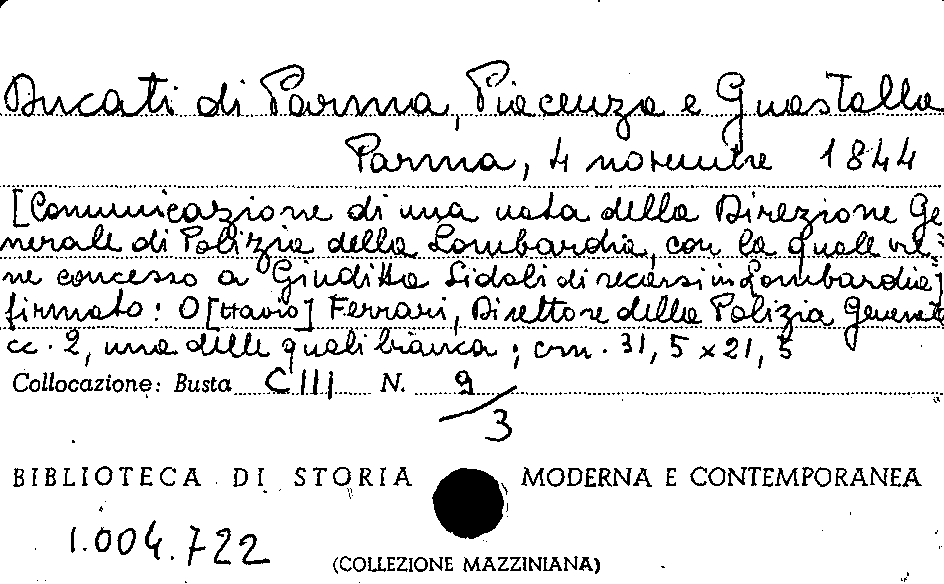 Ducati di Parma, Piacenza e Guastalla
Parma, 4 novembre 1844
[Comunicazione di una nota della Direzione Ge=
nerale di Polizia della Lombardia, con la quale vie=
ne concesso a Giuditta Sidoli di recarsi in Lombardia]
firmato: O[ttavio] Ferrari, Direttore della Polizia Generale
cc. 2, una delle quali bianca; cm. 31,5 x 21,5
Collocazione: Busta CIII N. 9/3
BIBLIOTECA DI STORIA MODERNA E CONTEMPORANEA
1.004.722
(COLLEZIONE MAZZINIANA)